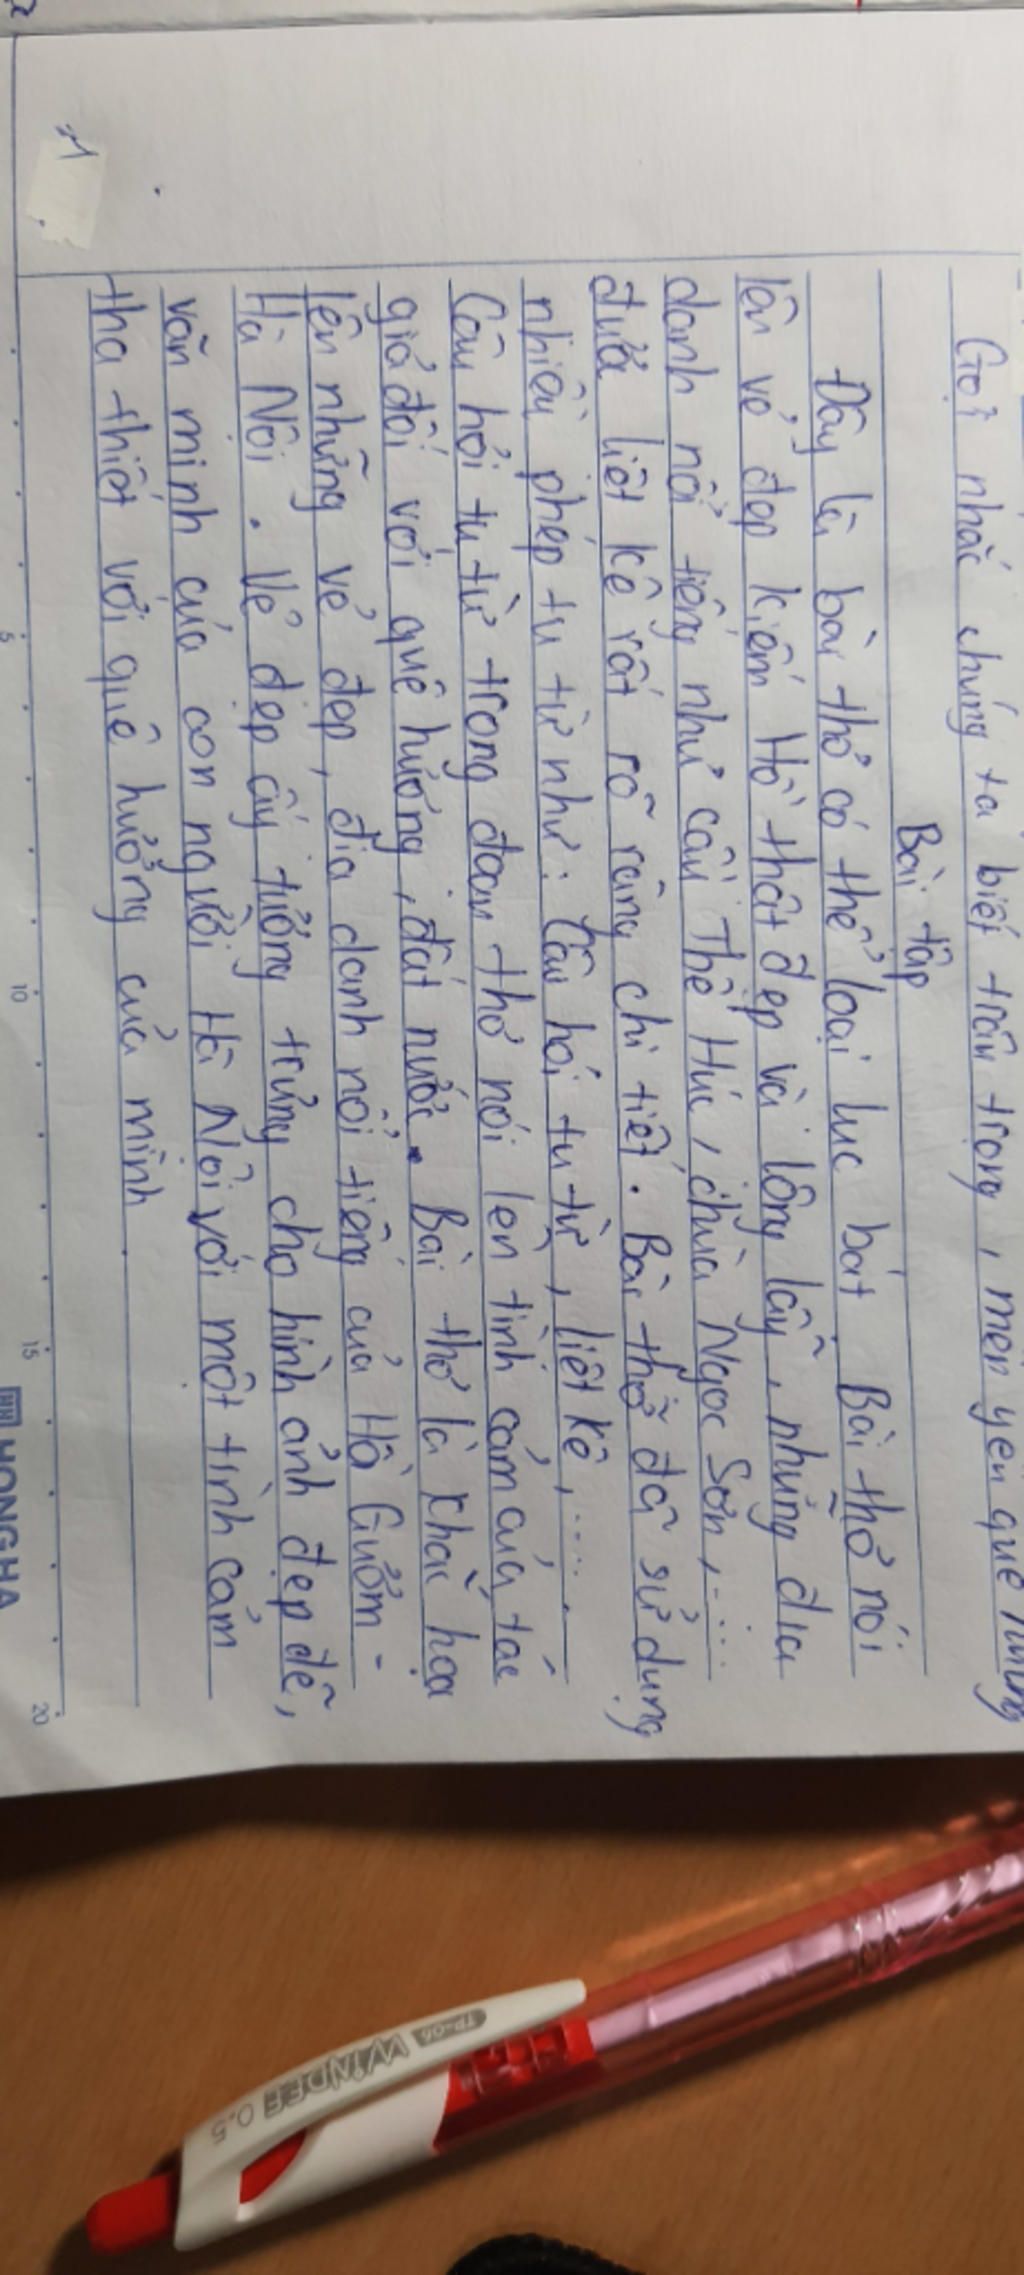 Gợi nhắc chúng ta biết trân trọng, mến yêu quê hương
Bài tập
Đây là bài thơ có thể loại lục bát. Bài thơ nói
lên vẻ đẹp kiếm Hồ thật đẹp và lộng lẫy, những địa
danh nổi tiếng như cầu Thê Húc, chùa Ngọc Sơn,....
được liệt kê rất rõ ràng chi tiết. Bài thơ đã sử dụng
nhiều phép tu từ như: Câu hỏi tu từ, liệt kê,.....
Câu hỏi tu từ trong đoạn thơ nói lên tình cảm của tác
giả đối với quê hương, đất nước. Bài thơ là khắc họa
lên những vẻ đẹp, địa danh nổi tiếng của Hồ Gươm -
Hà Nội. Vẻ đẹp ấy tượng trưng cho hình ảnh đẹp đẽ,
văn minh của con người Hà Nội với một tình cảm
tha thiết với quê hương của mình.
5 10 15 20
HONGHA
TP-06 WINDEE 0.5